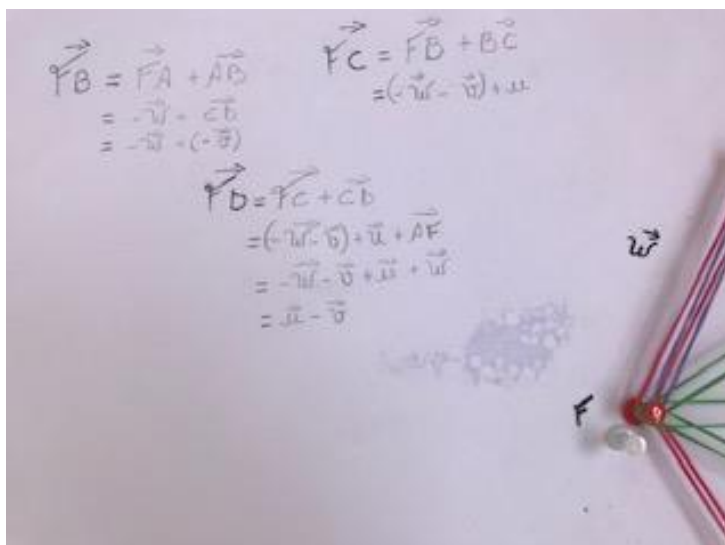 →FB = →FA + →AB
= -→w + →CD
= -→w + (-→v)
→FC = →FB + →BC
= (-→w - →v) + u
→FD = →FC + →CD
= (-→w - →v) + →u + →AF
= -→w - →v + →u + →w
= →u - →v
→w
F